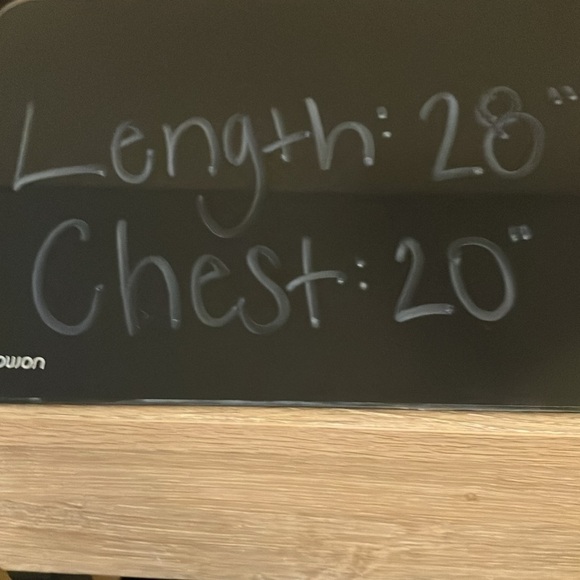 Length: 28"
Chest: 20"